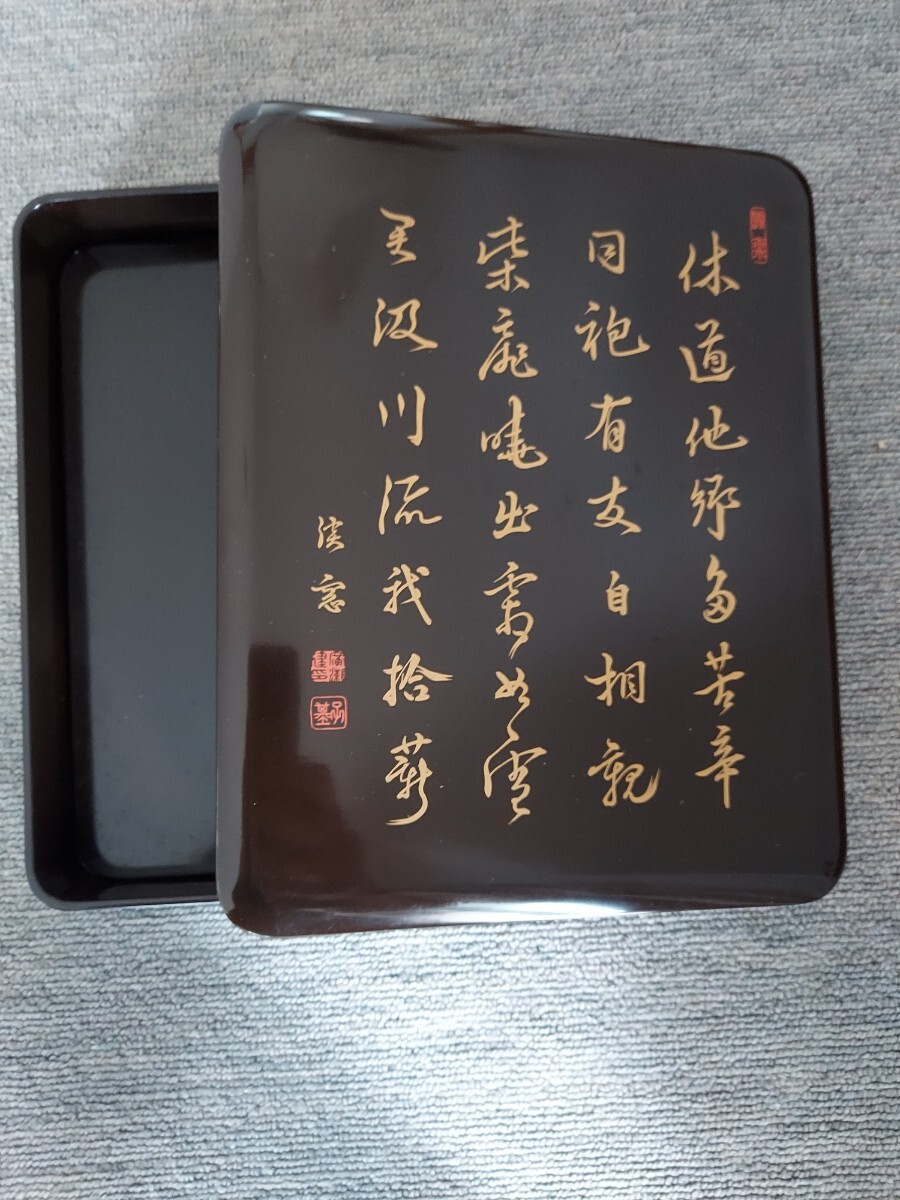 休道他郷多苦辛
同袍有友自相親
柴扉曉出霜如雪
君汲川流我拾薪
淡窓
子基